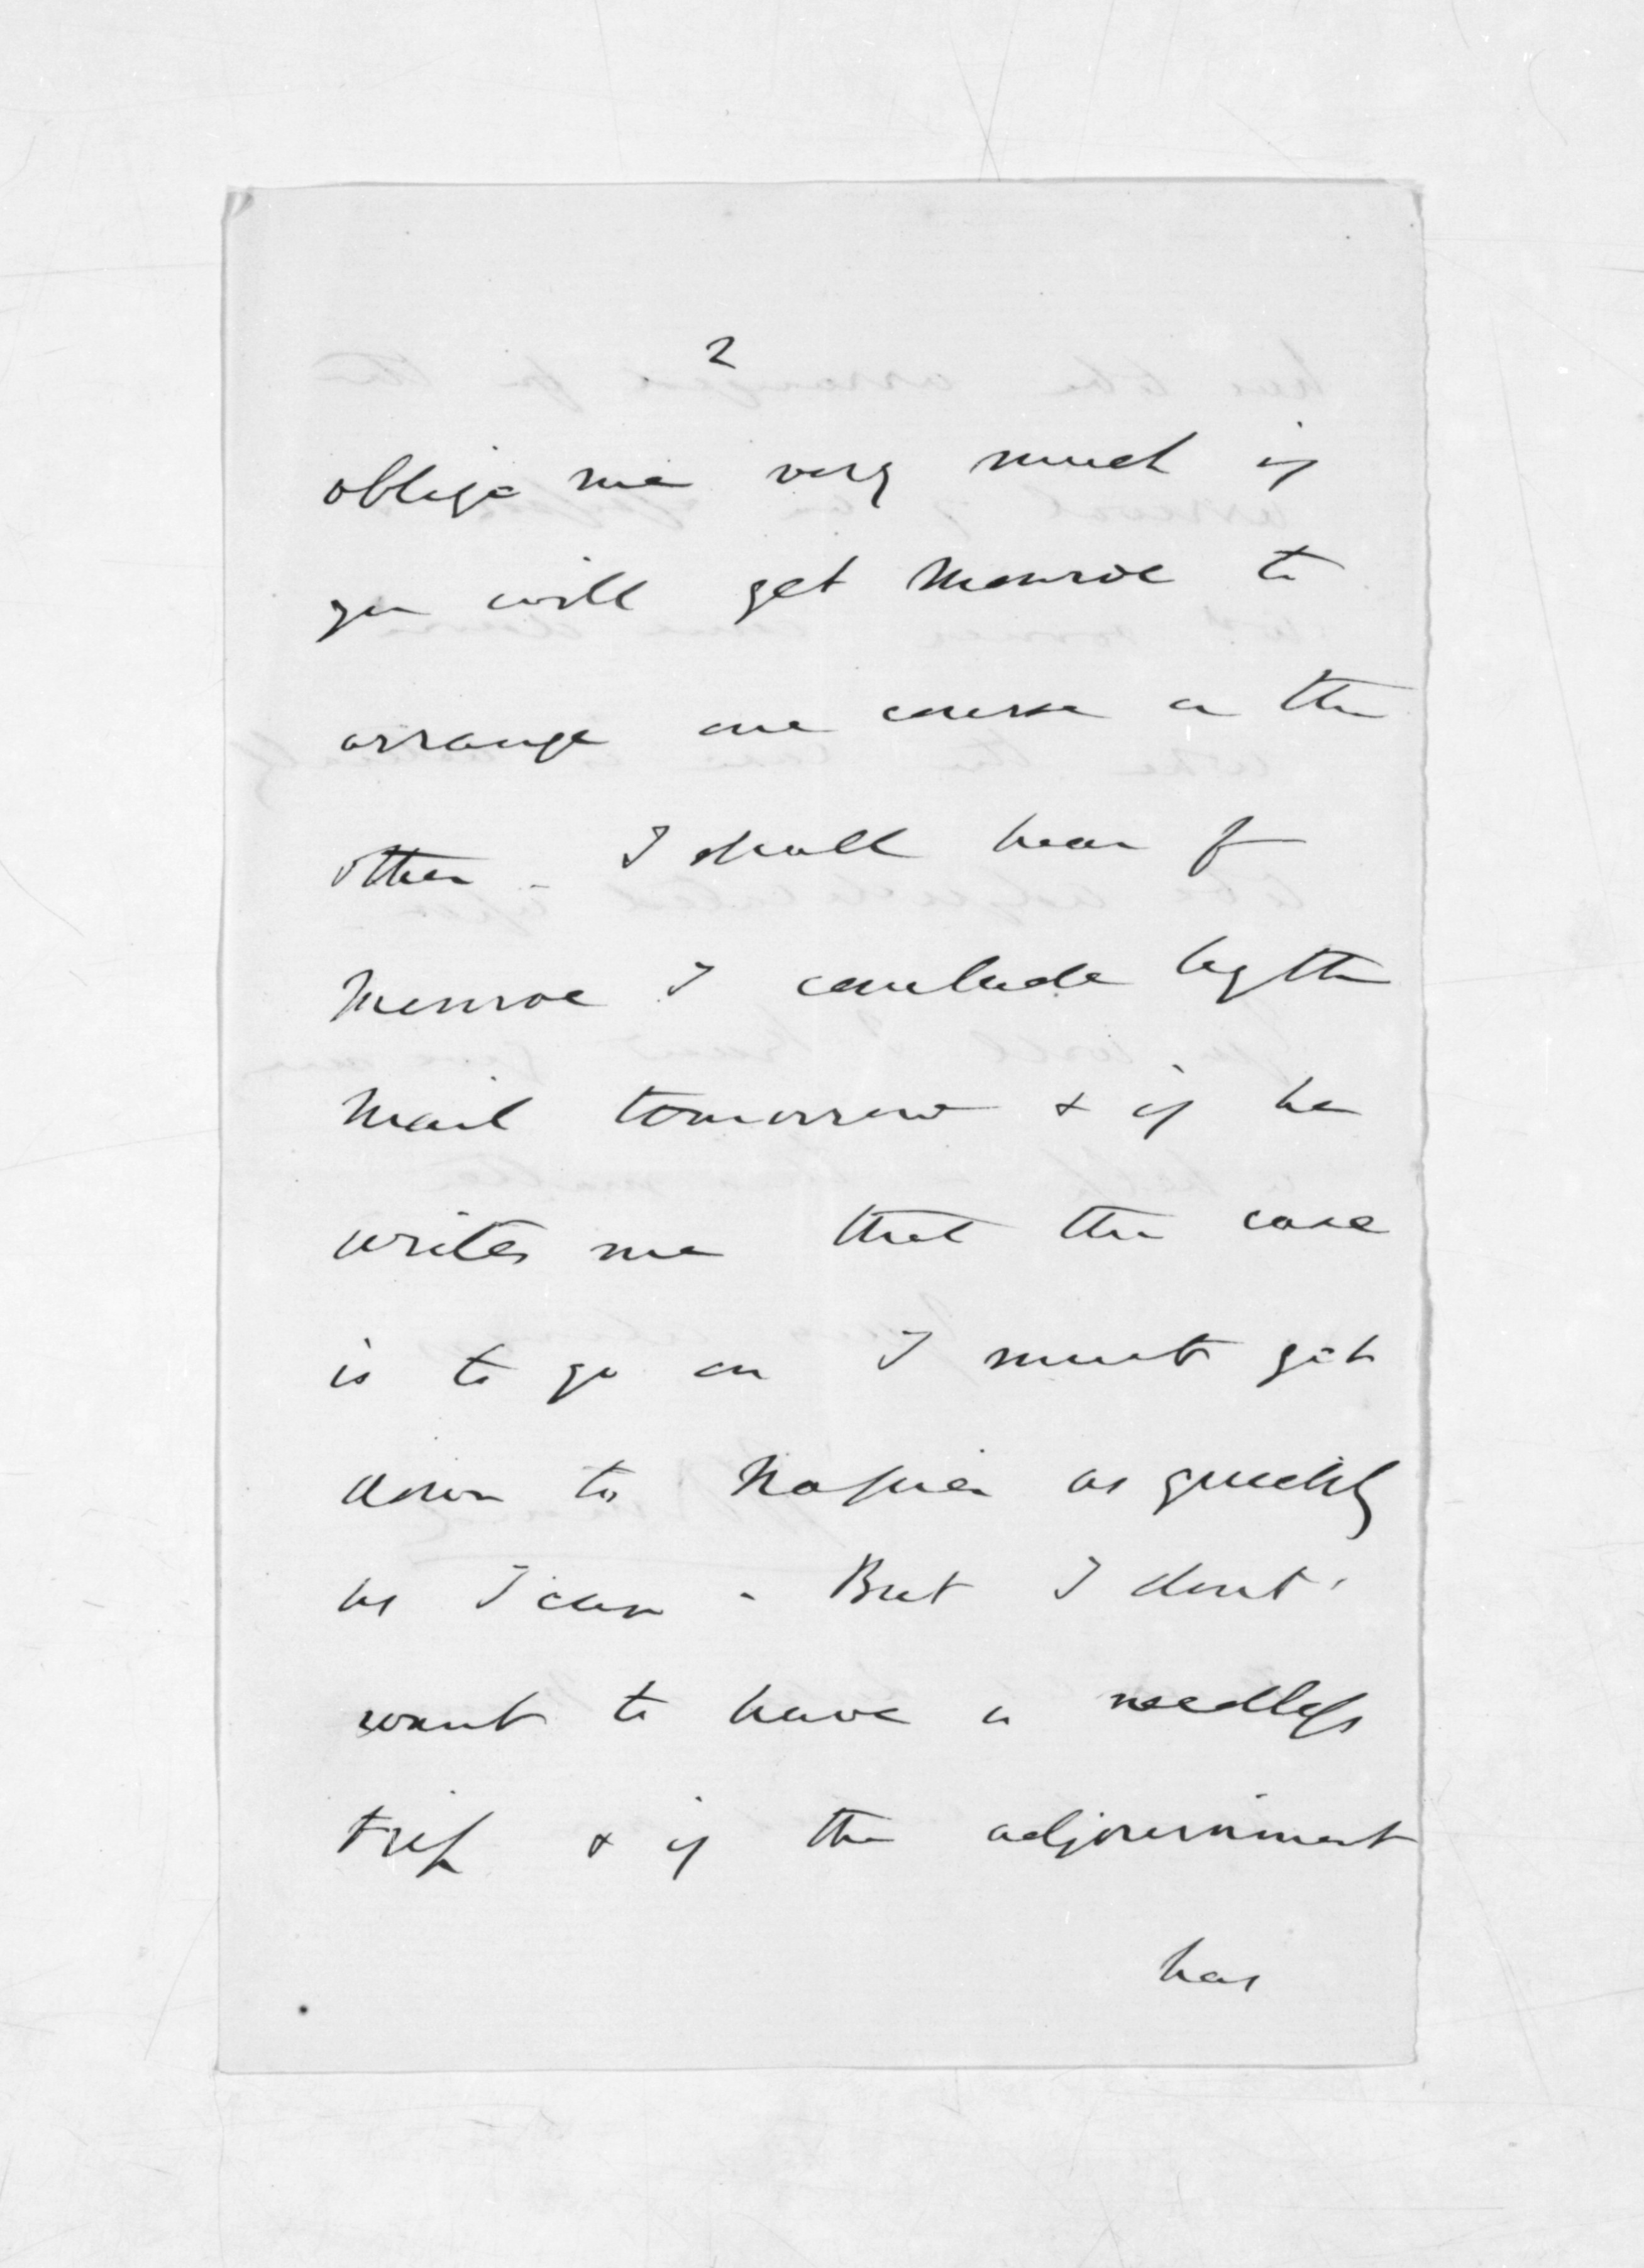 2
oblige me very much if
you will get Monroe to
arrange one course or the
other - I shall hear of
Monroe I conclude by the
Mail tomorrow & if he
writes me that the case
is to go on I must get
down to Napier as quickly
as I can - But I dont
want to have a needless
trip & if the adjournment
has